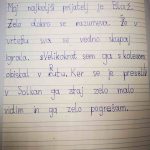 Moj najboljši prijatelj je Blaž.
Zelo dobro se razumeva. Že v
vrtcu sva se vedno skupaj
igrala. Velikokrat sem ga s kolesom
obiskal v Rutu. Ker se je preselil
v Solkan ga zdaj zelo malo
vidim in ga zelo pogrešam.